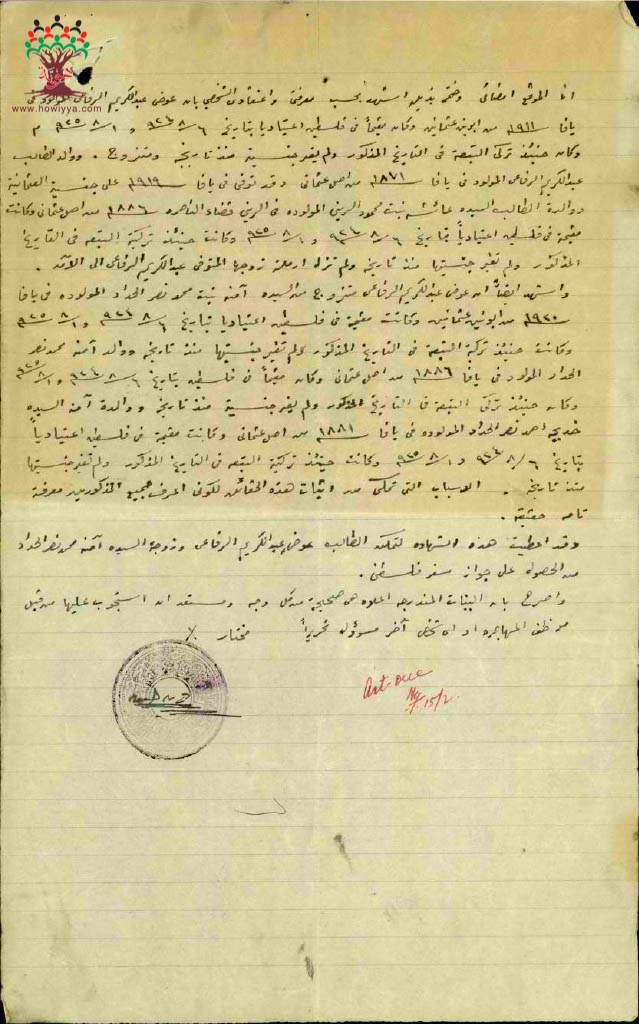 www.howiyya.com
انا الموقع امضائي وختمي بذيله اشهد بحسب معرفتي واعتقادي الشخصي بان عوض عبدالكريم الرفاعي المولود في
يافا ١٩١١ من ابوين عثمانيين وكان مقيماً في فلسطين اعتيادياً بتاريخ ٦/٨/٩٢٤ و ١/٨/٩٢٥ م
وكان حينئذ تركي التبعة في التاريخ المذكور ولم يغير جنسيته منذ تاريخه ومتزوج . ووالد الطالب
عبدالكريم الرفاعي المولود في يافا ١٨٧١ من اصل عثماني وقد توفى في يافا ١٩١٩ على جنسية العثمانية
ووالدة الطالب السيده عائشه بنت محمود الريني المولوده في الرينه قضاء الناصره ١٨٨٦ من اصل عثماني وكانت
مقيمة في فلسطين اعتيادياً بتاريخ ٦/٨/٩٢٤ و ١/٨/٩٢٥ وكانت حينئذ تركية التبعه في التاريخ
المذكور ولم تغير جنسيتها منذ تاريخه ولم تزل ارملة زوجها المتوفى عبدالكريم الرفاعي الى الآن .
واشهد ايضاً ان عوض عبدالكريم الرفاعي متزوج من السيده آمنه بنت محمد نصر الحداد المولوده في يافا
١٩٢٠ من ابوين عثمانيين وكانت مقيمة في فلسطين اعتياديا بتاريخ ٦/٨/٩٢٤ و ١/٨/٩٢٥
وكانت حينئذ تركية التبعة في التاريخ المذكور ولم تغير جنسيتها منذ تاريخه ووالد آمنه محمد نصر
الحداد المولود في يافا ١٨٨٦ من اصل عثماني وكان مقيماً في فلسطين بتاريخ ٦/٨/٩٢٤ و ١/٨/٩٢٥
وكان حينئذ تركي التبعة في التاريخ المذكور ولم يغير جنسيته منذ تاريخه ووالدة آمنه السيده
خديجه احمد نصر الحداد المولوده في يافا ١٨٨١ من اصل عثماني وكانت مقيمة في فلسطين اعتيادياً
بتاريخ ٦/٨/٩٢٤ و ١/٨/٩٢٥ وكانت حينئذ تركية التبعه في التاريخ المذكور ولم تغير جنسيتها
منذ تاريخه . الاسباب التي تمكني من اثبات هذه الحقائق لكوني اعرف جميع المذكورين معرفة
تامه حقيقية .
وقد اعطيت هذه الشهاده لتمكن الطالب عوض عبدالكريم الرفاعي وزوجة السيده آمنه محمد نصر الحداد
من الحصول على جواز سفر فلسطيني .
واصرح بان البينات المندرجه اعلاه هي صحيحة من كل وجه ومستعد ان استجوب عليها من قبل
موظف المهاجره او اي شخص آخر مسؤول تحريراً
مختار
15/2.